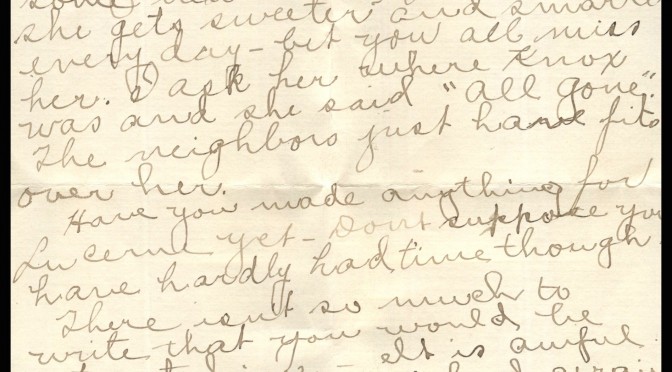 she gets sweeter and smarter
every day - bet you all miss
her. I ask her where Knox
was and she said "all gone".
The neighbors just have fits
over her.
Have you made anything for
Lucerne yet - Dont suppose you
have hardly had time though
There isn't so much to
write that you would be
- It is awful